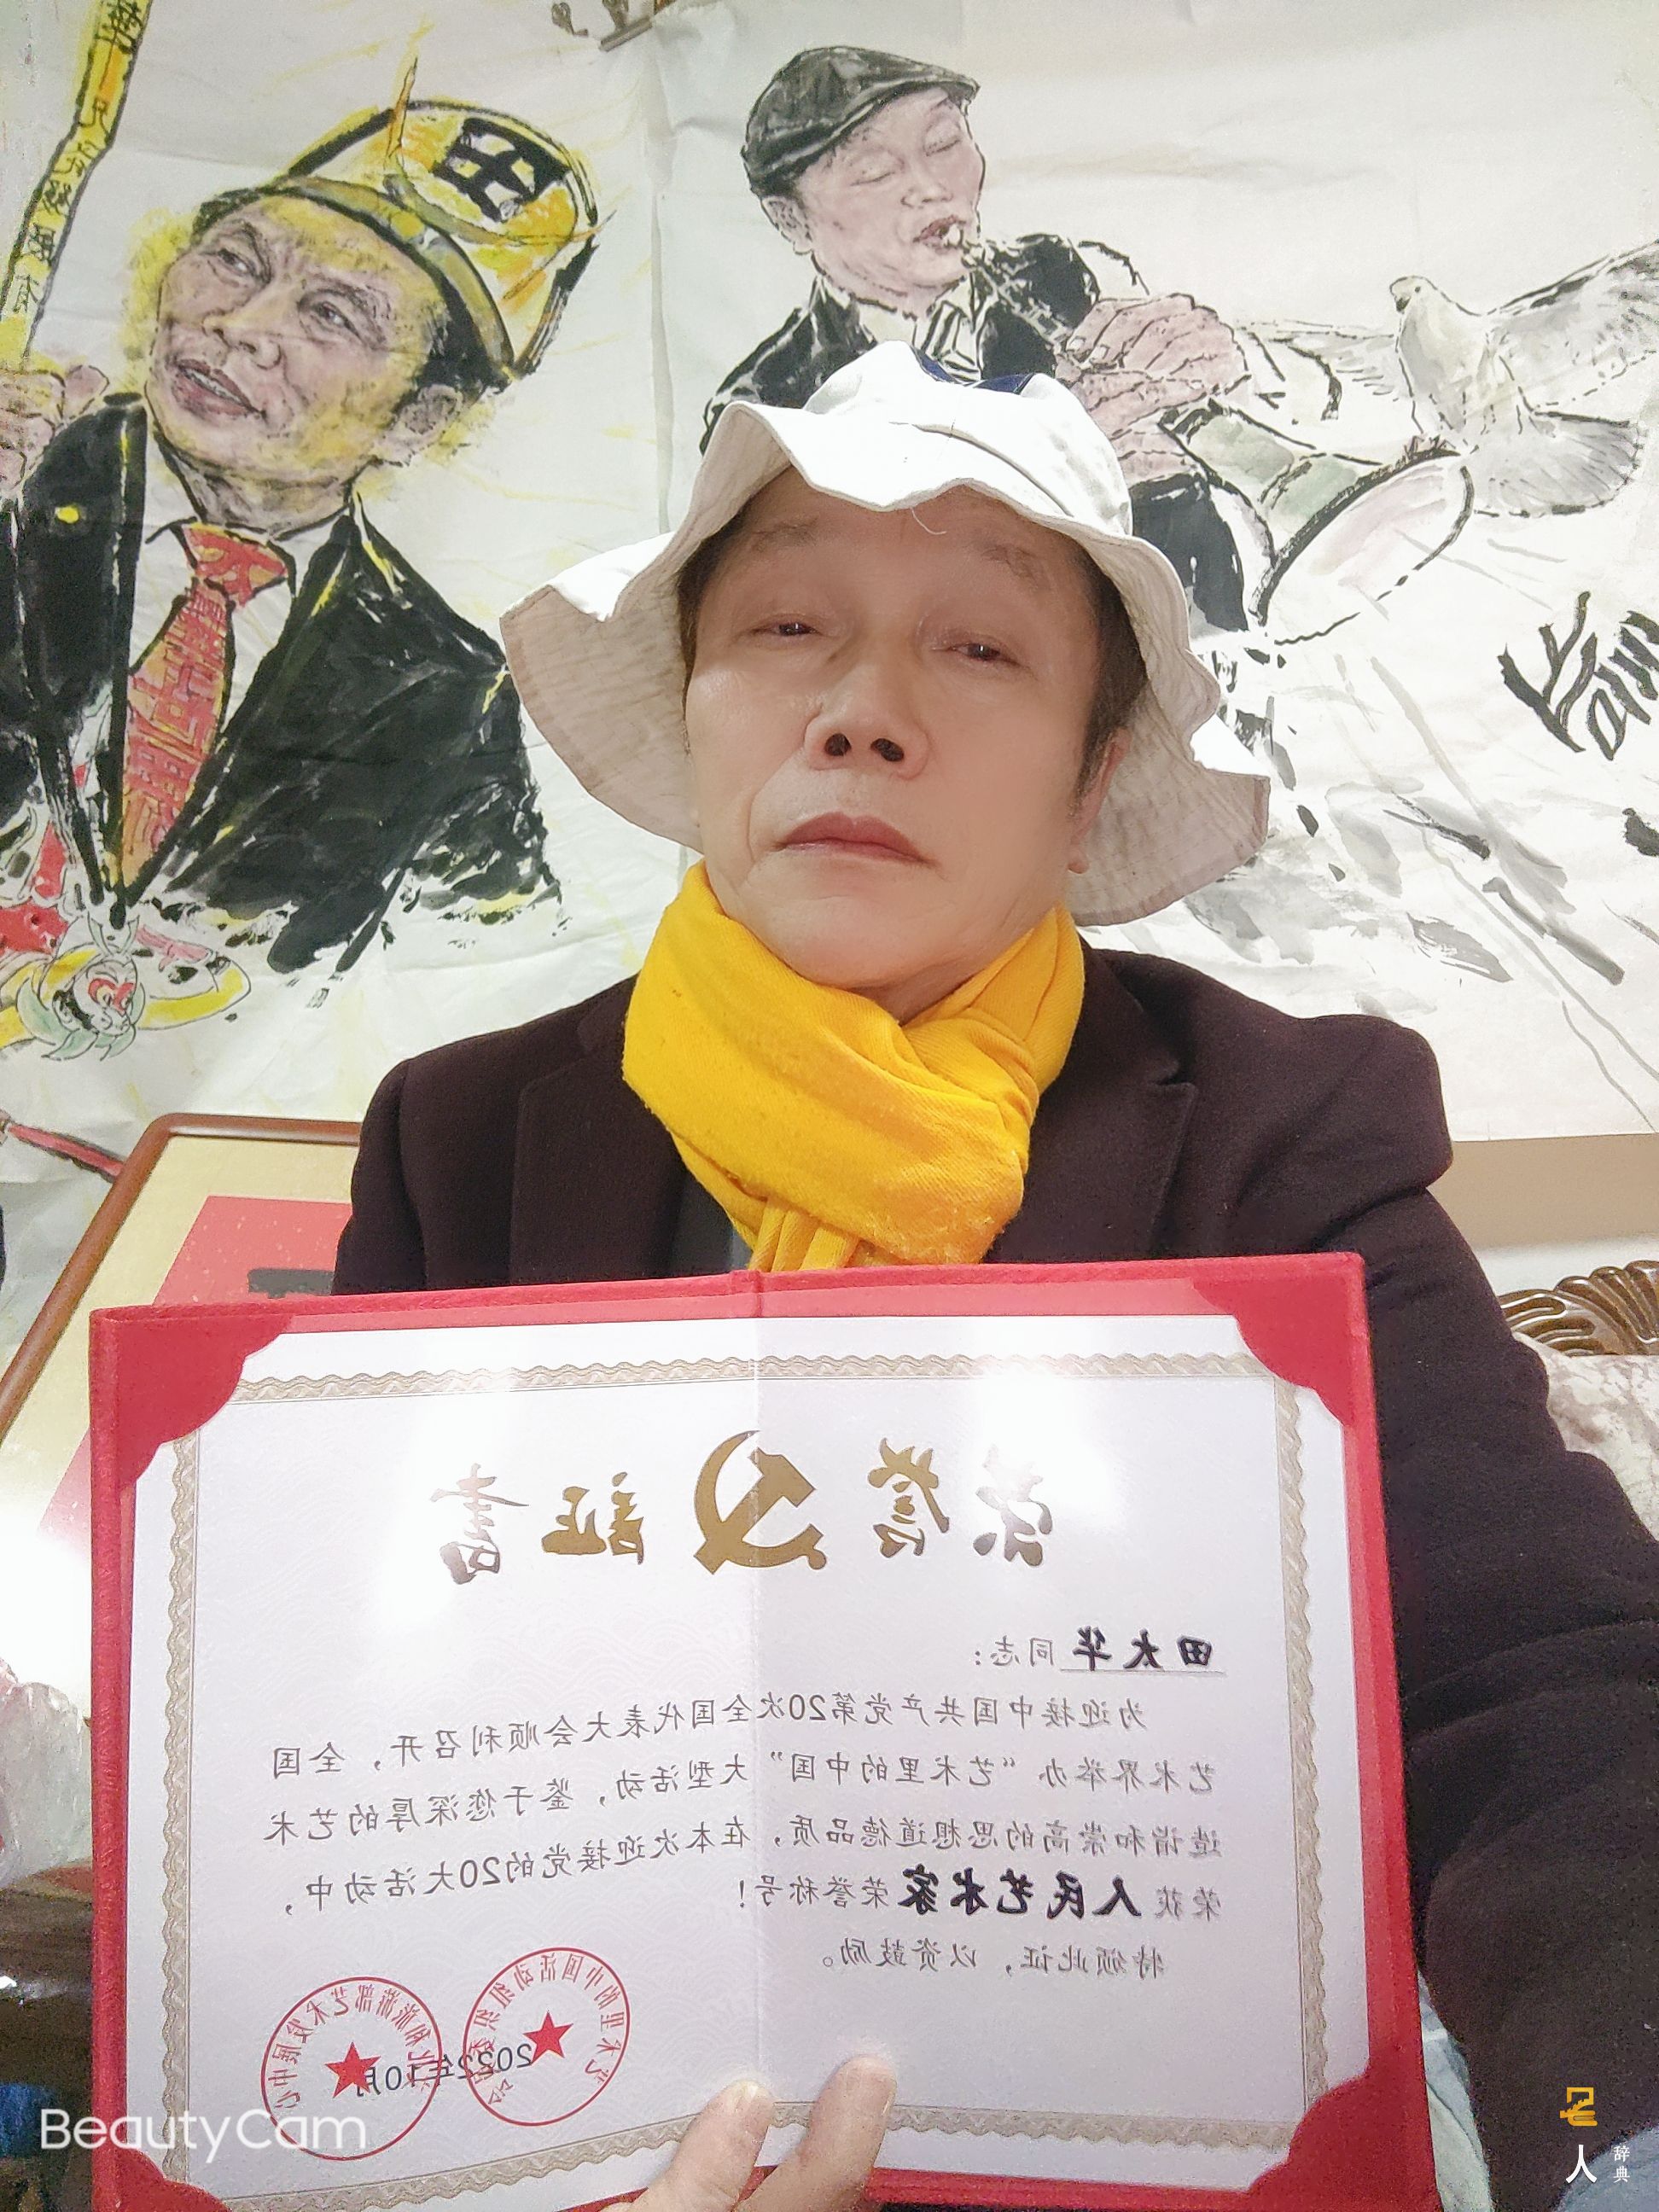 田
荣誉证書
田太华 同志：
为迎接中国共产党第20次全国代表大会顺利召开，全国
艺术界举办“艺术里的中国”大型活动，鉴于您深厚的艺术
造诣和崇高的思想道德品质，在本次迎接党的20大活动中，
荣获 人民艺术家 荣誉称号！
特颁此证，以资鼓励。
2022年10月
BeautyCam
人
辞典